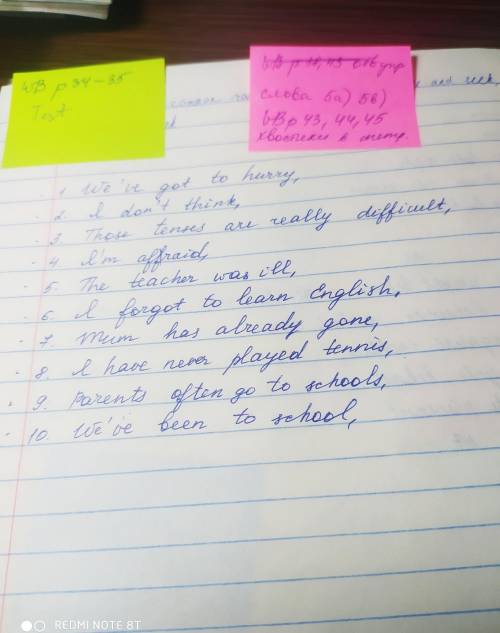 WB p 34-35
Test
слова 5a) 5в)
WB p 43, 44, 45
хвостики в тетр.
1. We've got to hurry,
2. I don't think,
3. Those tenses are really difficult,
4. I'm affraid,
5. The teacher was ill,
6. I forgot to learn English,
7. Mum has already gone,
8. I have never played tennis,
9. Parents often go to schools,
10. We've been to school,
REDMI NOTE 8T